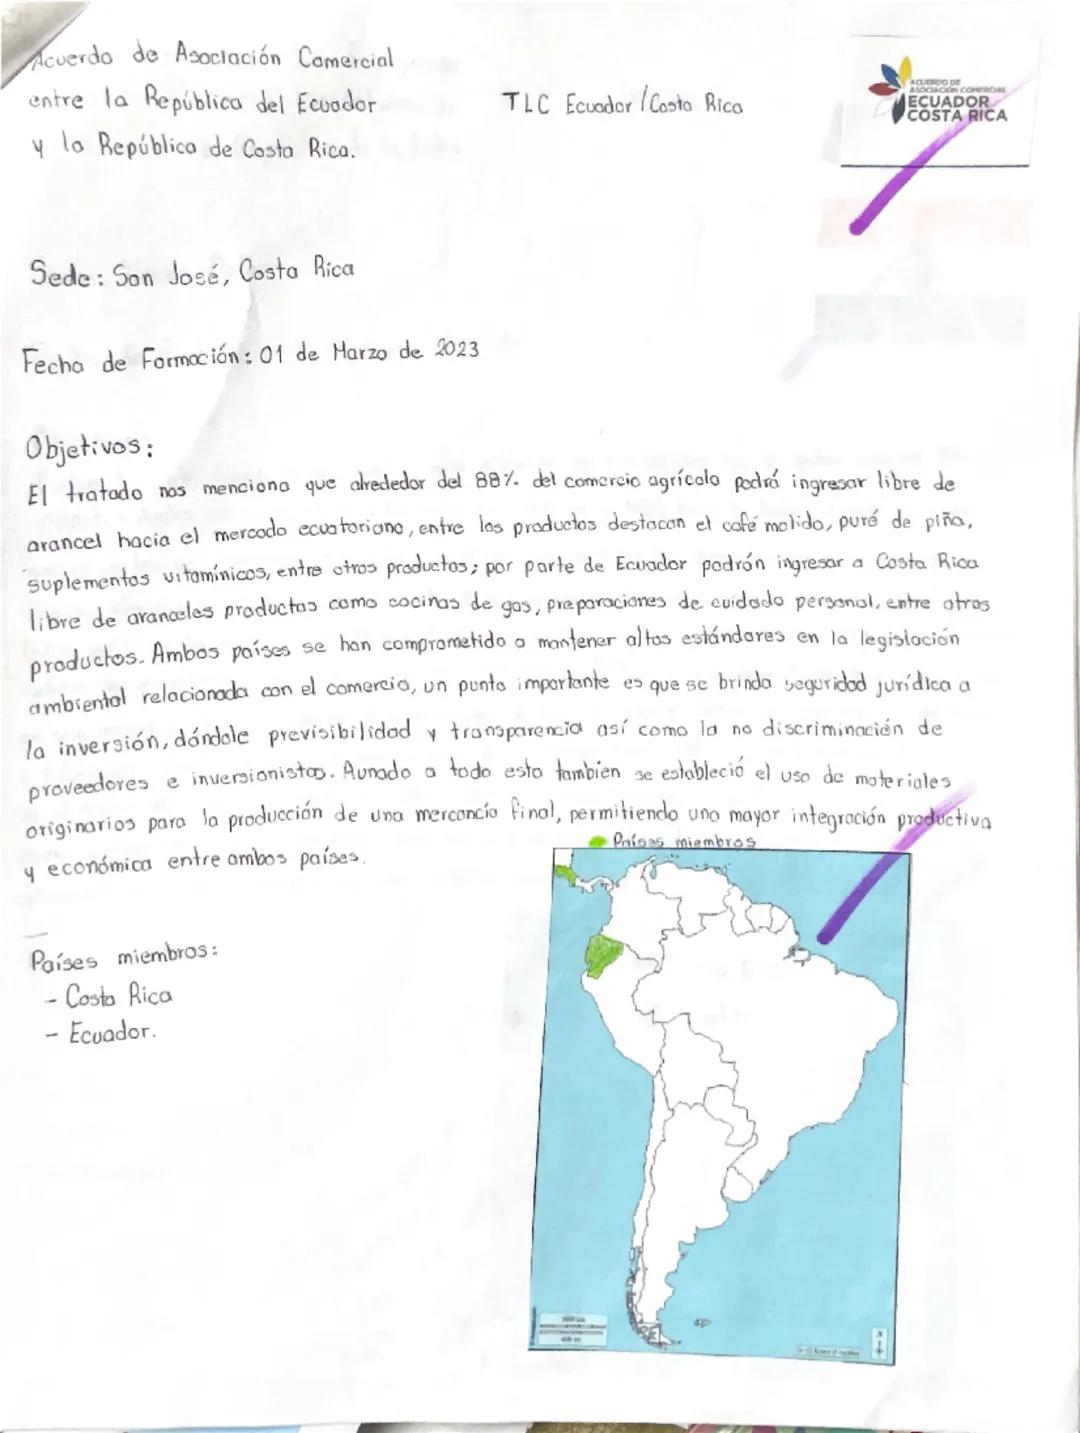 Acuerdo de Asociación Comercial
entre la República del Ecuador
y la República de Costa Rica.
TLC Ecuador / Costa Rica
ACUERDO DE
ASOCIACIÓN COMERCIAL
ECUADOR
COSTA RICA
Sede: San José, Costa Rica
Fecha de Formación: 01 de Marzo de 2023
Objetivos:
El tratado nos menciona que alrededor del 88% del comercio agrícola podrá ingresar libre de
arancel hacia el mercado ecuatoriano, entre los productos destacan el café molido, puré de piña,
suplementos vitamínicos, entre otros productos; por parte de Ecuador podrán ingresar a Costa Rica
libre de aranceles productos como cocinas de gas, preparaciones de cuidado personal, entre otros
productos. Ambos países se han comprometido a mantener altos estándares en la legislación
ambiental relacionada con el comercio, un punto importante es que se brinda seguridad jurídica a
la inversión, dándole previsibilidad y transparencia así como la no discriminación de
proveedores e inversionistas. Aunado a todo esto tambien se estableció el uso de materiales
originarios para la producción de una mercancía final, permitiendo una mayor integración productiva
y económica entre ambos países.
Países miembros
Países miembros:
- Costa Rica
- Ecuador.